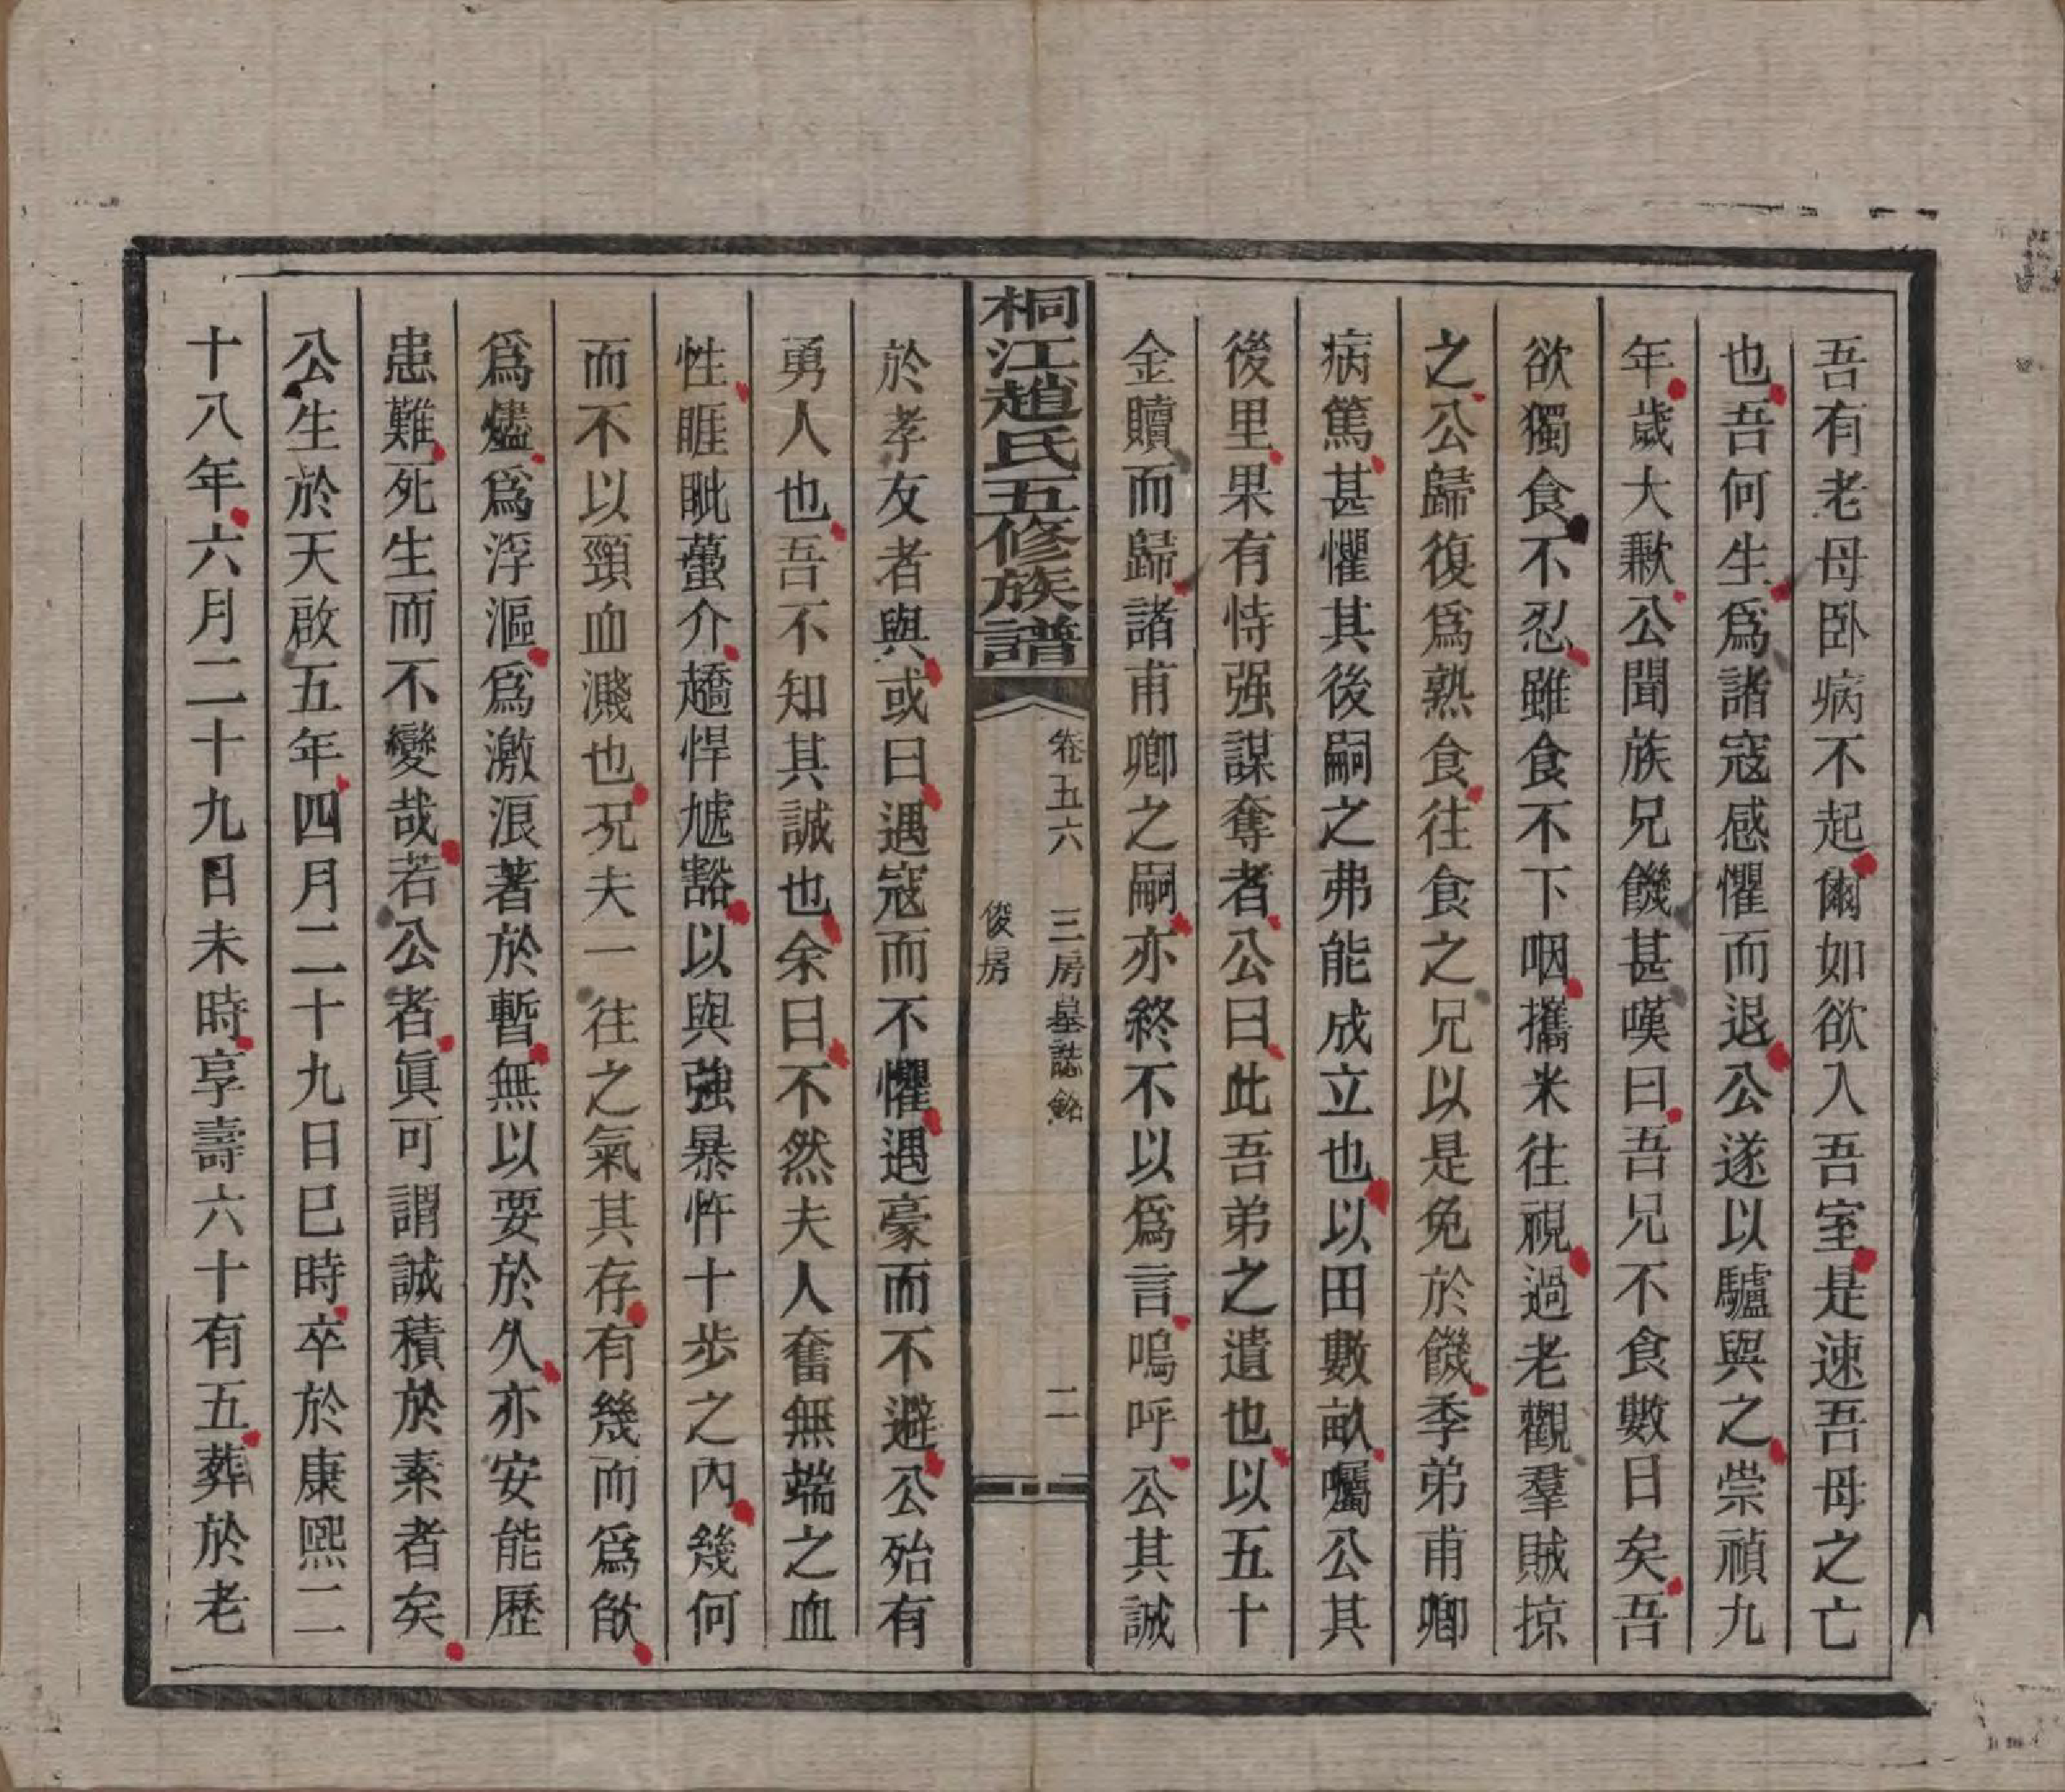 吾有老母卧病不起爾如欲入吾室是速吾母之亡
也吾何生爲諸寇感懼而退公遂以驢與之崇禎九
年歲大歉公聞族兄饑甚嘆曰吾兄不食數日矣吾
欲獨食不忍雖食不下咽攜米往視過老觀羣賊掠
之公歸復爲熟食往食之兄以是免於饑季弟甫卿
病篤甚懼其後嗣之弗能成立也以田數畝囑公其
後里果有恃强謀奪者公曰此吾弟之遺也以五十
金贖而歸諸甫卿之嗣亦終不以爲言嗚呼公其誠
桐江趙氏五修族譜
卷五六 三房墓誌銘 二
俊房
於孝友者與或曰遇寇而不懼遇豪而不避公殆有
勇人也吾不知其誠也余曰不然夫人奮無端之血
性睚眦蠆介趫悍尷豁以與強暴忤十步之內幾何
而不以頸血濺也况夫一往之氣其存有幾而爲歒
爲爐爲浮漚爲激浪著於暫無以要於久亦安能歷
患難死生而不變哉若公者眞可謂誠積於素者矣
公生於天啟五年四月二十九日巳時卒於康熙二
十八年六月二十九日未時享壽六十有五葬於老